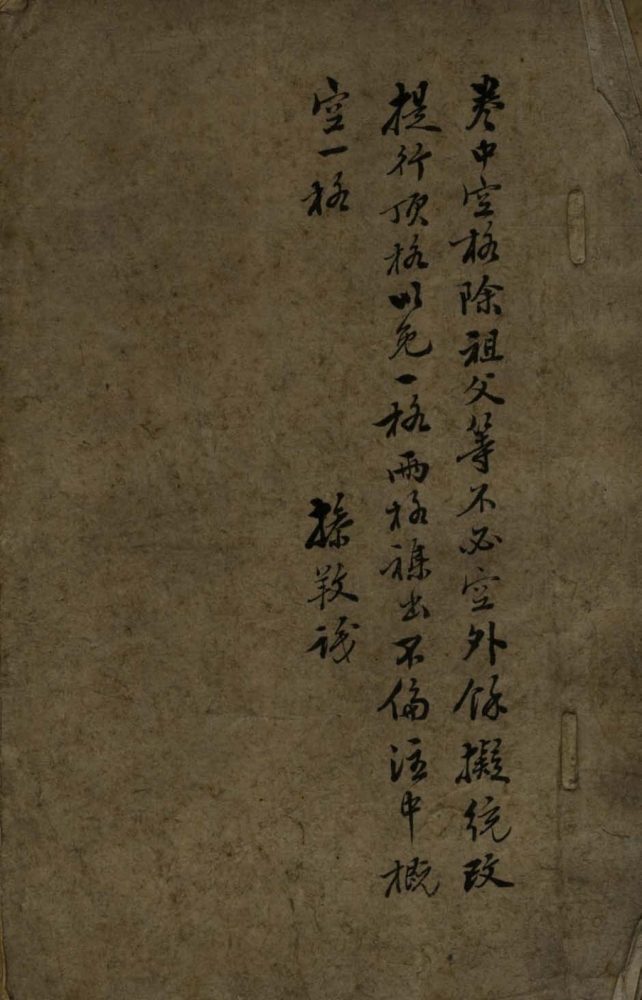 卷中空格除祖父等不必空外餘擬統改
提行頂格以免一格兩格襍出不倫注中概
空一格
敬識